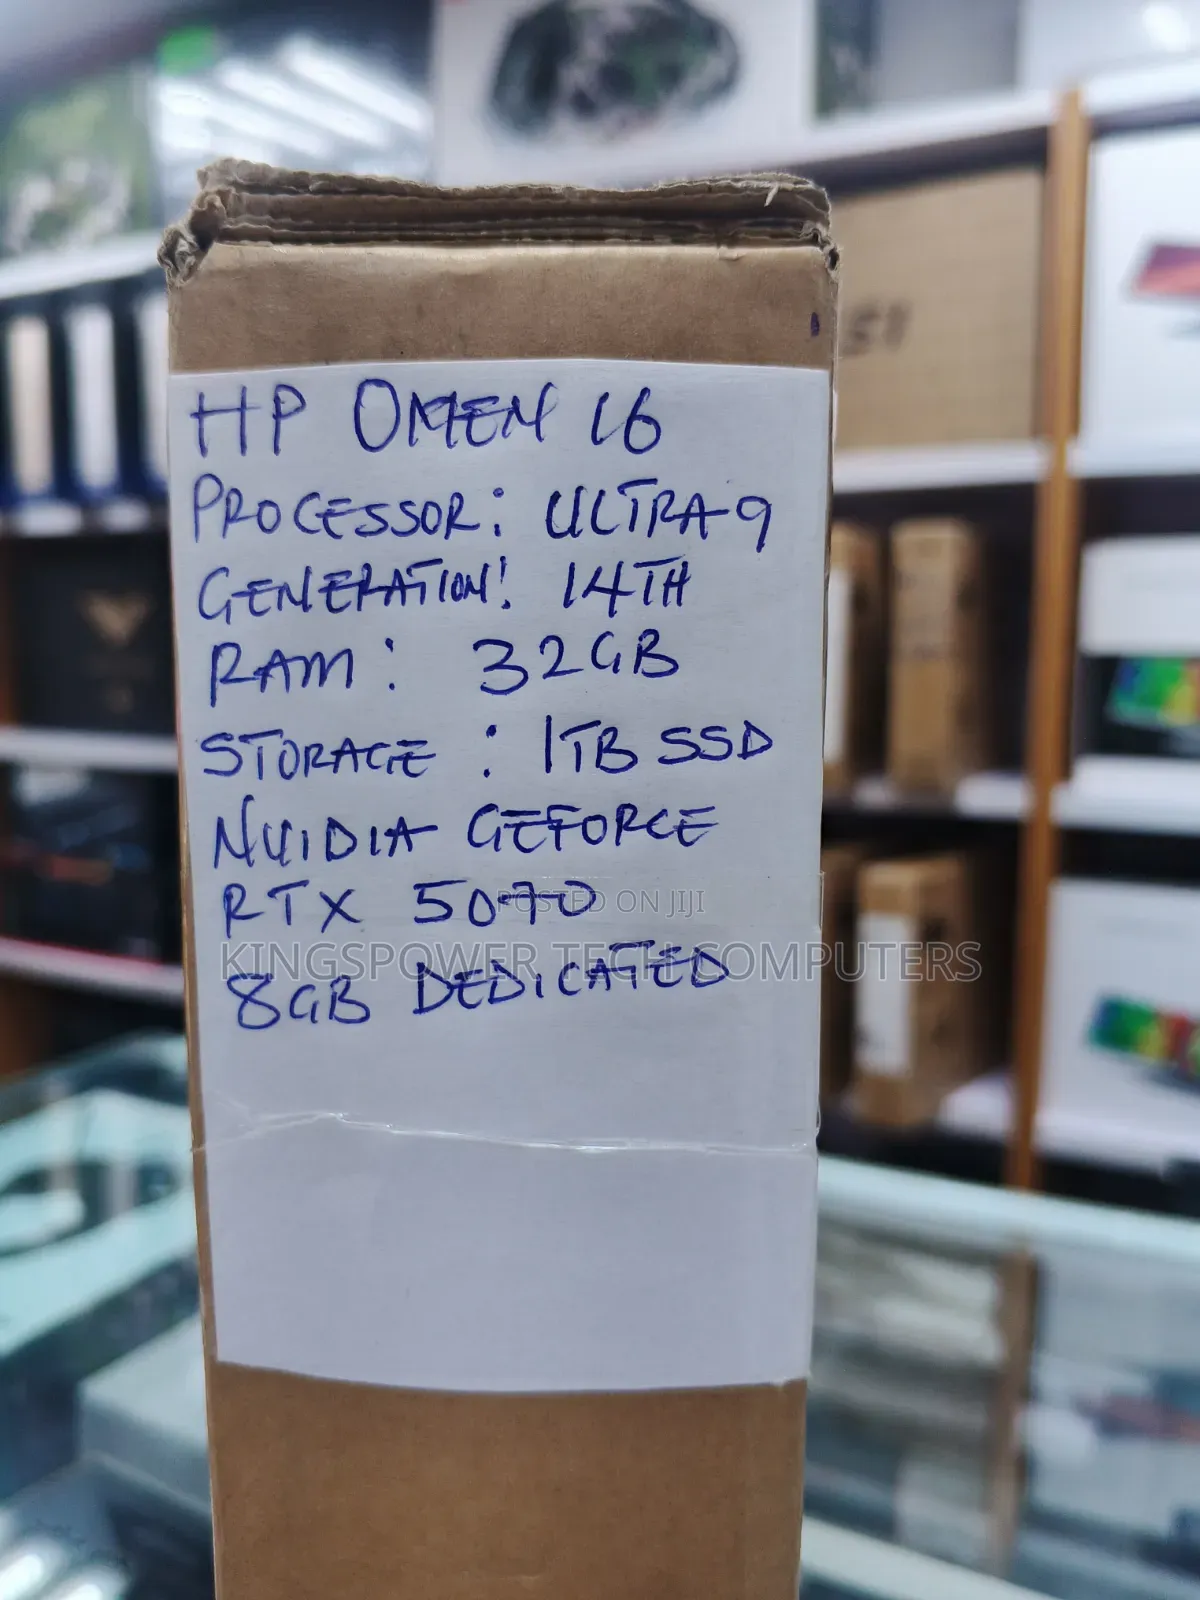 HP OMEN 16
PROCESSOR: ULTRA-9
GENERATION: 14TH
RAM: 32GB
STORAGE : 1TB SSD
NVIDIA GEFORCE
RTX 5070
POSTED ON JIJI
KINGSPOWER TECH COMPUTERS
8GB DEDICATED